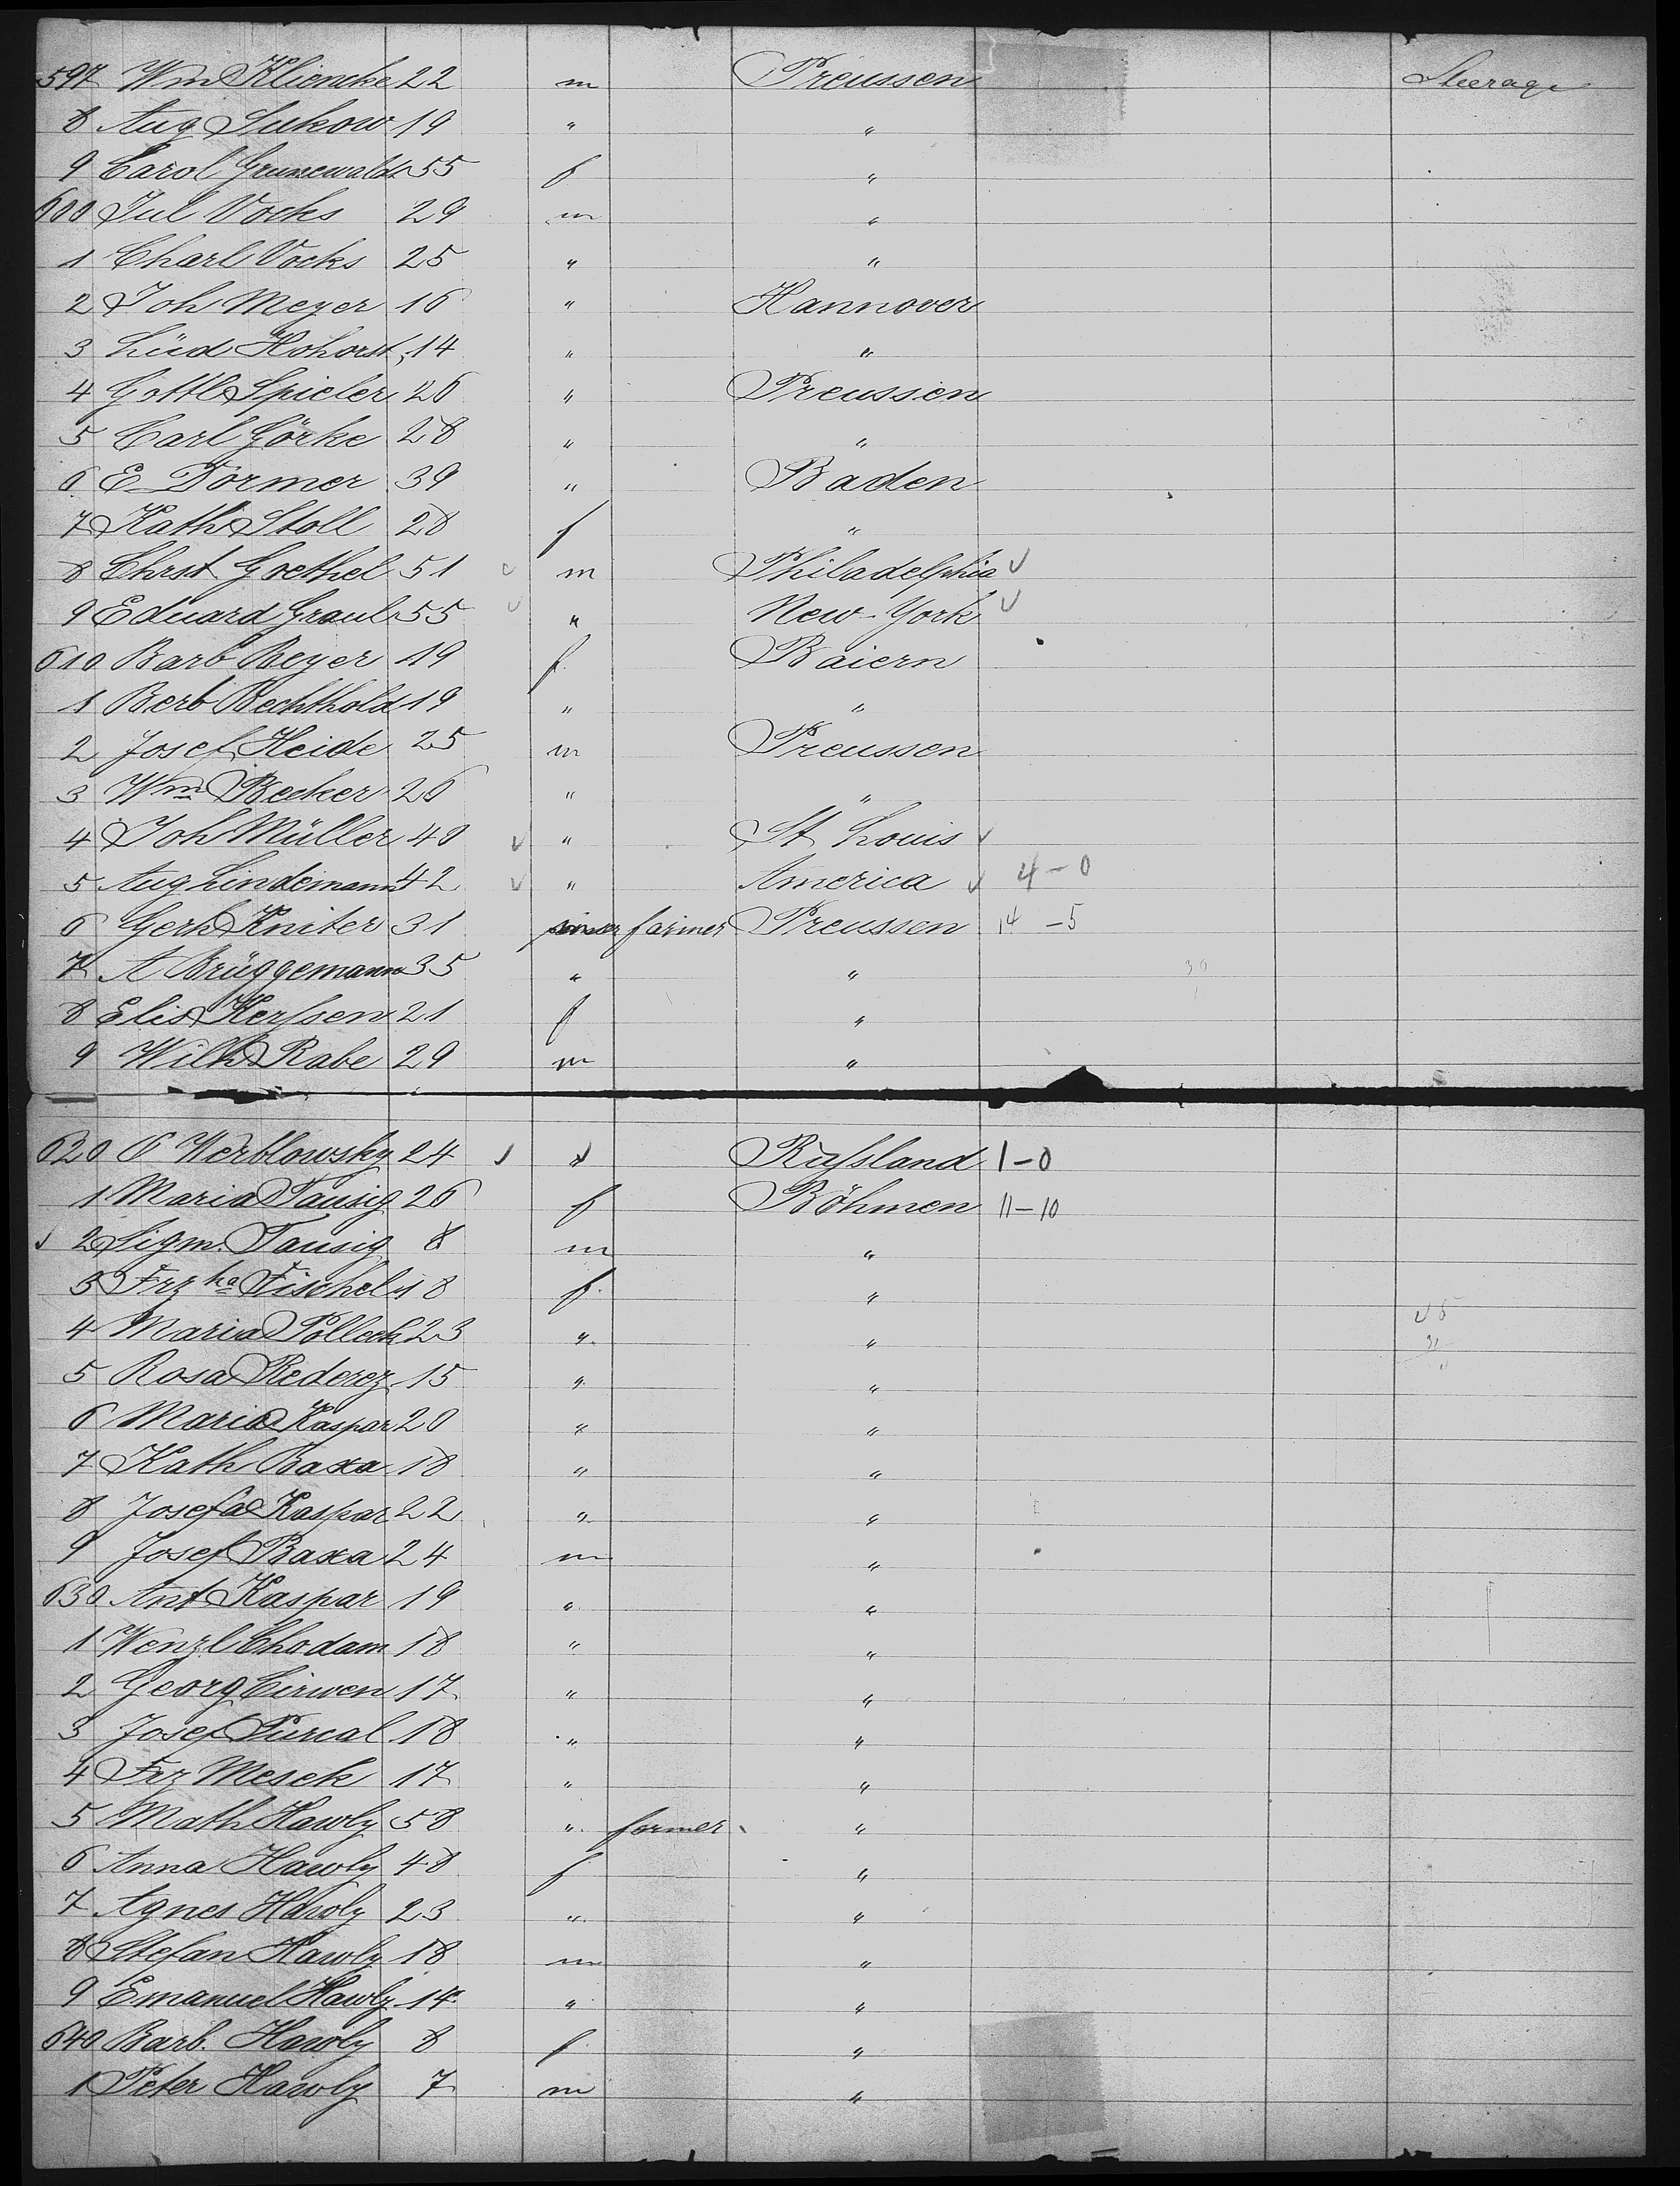 597 Wm Kliencke 22 m Preussen Steerage
8 Aug Sukow 19 " "
9 Carol Grunewald 55 f "
600 Jul Vocks 29 m "
1 Charl Vocks 25 " "
2 Joh Meyer 16 " Hannover
3 Lüd Hohorst 14 " "
4 Gottl Spieler 26 " Preussen
5 Carl Görke 28 " "
6 E Dörmer 39 " Baden
7 Kath Stoll 28 f "
8 Chrst Goethel 51 ✓ m Philadelphia ✓
9 Eduard Graul 55 ✓ " New-York ✓
610 Barb Beyer 19 f Baiern
1 Berb Bechthold 19 " "
2 Josef Heide 25 m Preussen
3 Wm Becker 26 " "
4 Joh Müller 40 ✓ " St Louis ✓
5 Aug Lindemann 42 ✓ " America ✓ 4-0
6 Gerh Kniter 31 farmer Preussen 14-5
7 A Brüggemann 35 " "
8 Elis Herssen 21 f "
9 Wilh Rabe 29 m "
620 Werblowsky 24 ✓ " Russland 1-0
1 Maria Tausig 26 f Böhmen 11-10
2 Sigm. Tausig 8 m "
3 Frzka Fischel 18 f "
4 Maria Polleck 23 " "
5 Rosa Rederez 15 " "
6 Maria Kaspar 20 " "
7 Kath Baxa 18 " "
8 Josefa Kaspar 22 " "
9 Josef Baxa 24 m "
630 Ant Kaspar 19 " "
1 Wenzl Chodam 18 " "
2 Georg Cirwen 17 " "
3 Josef Purcal 18 " "
4 Frz Mesek 17 " "
5 Math Hawly 58 " farmer "
6 Anna Hawly 48 f "
7 Agnes Hawly 23 " "
8 Stefan Hawly 18 m "
9 Emanuel Hawly 14 " "
640 Barb. Hawly 8 f "
1 Peter Hawly 7 m "